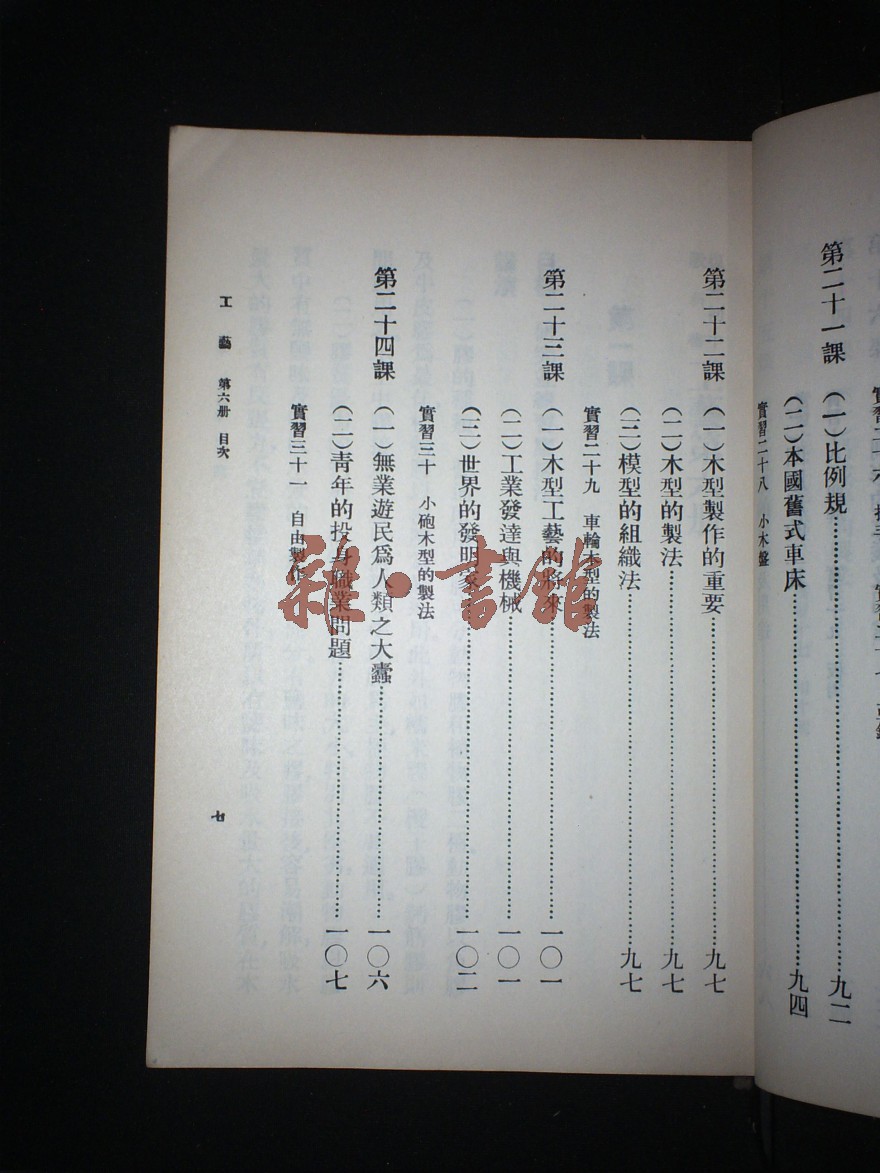 第二十一課 (一)比例規 九二
(二)本國舊式車床 九四
實習二十八 小木盤
第二十二課 (一)木型製作的重要 九七
(二)木型的製法 九七
(三)模型的組織法 九七
實習二十九 車輪木型的製法
第二十三課 (一)木型工藝的將來 一〇一
(二)工業發達與機械 一〇一
(三)世界的發明家 一〇二
實習三十 小砲木型的製法
第二十四課 (一)無業遊民爲人類之大蠹 一〇六
(二)青年的投身職業問題 一〇七
實習三十一 自由製作
工藝 第六册 目次
七
雜·書館